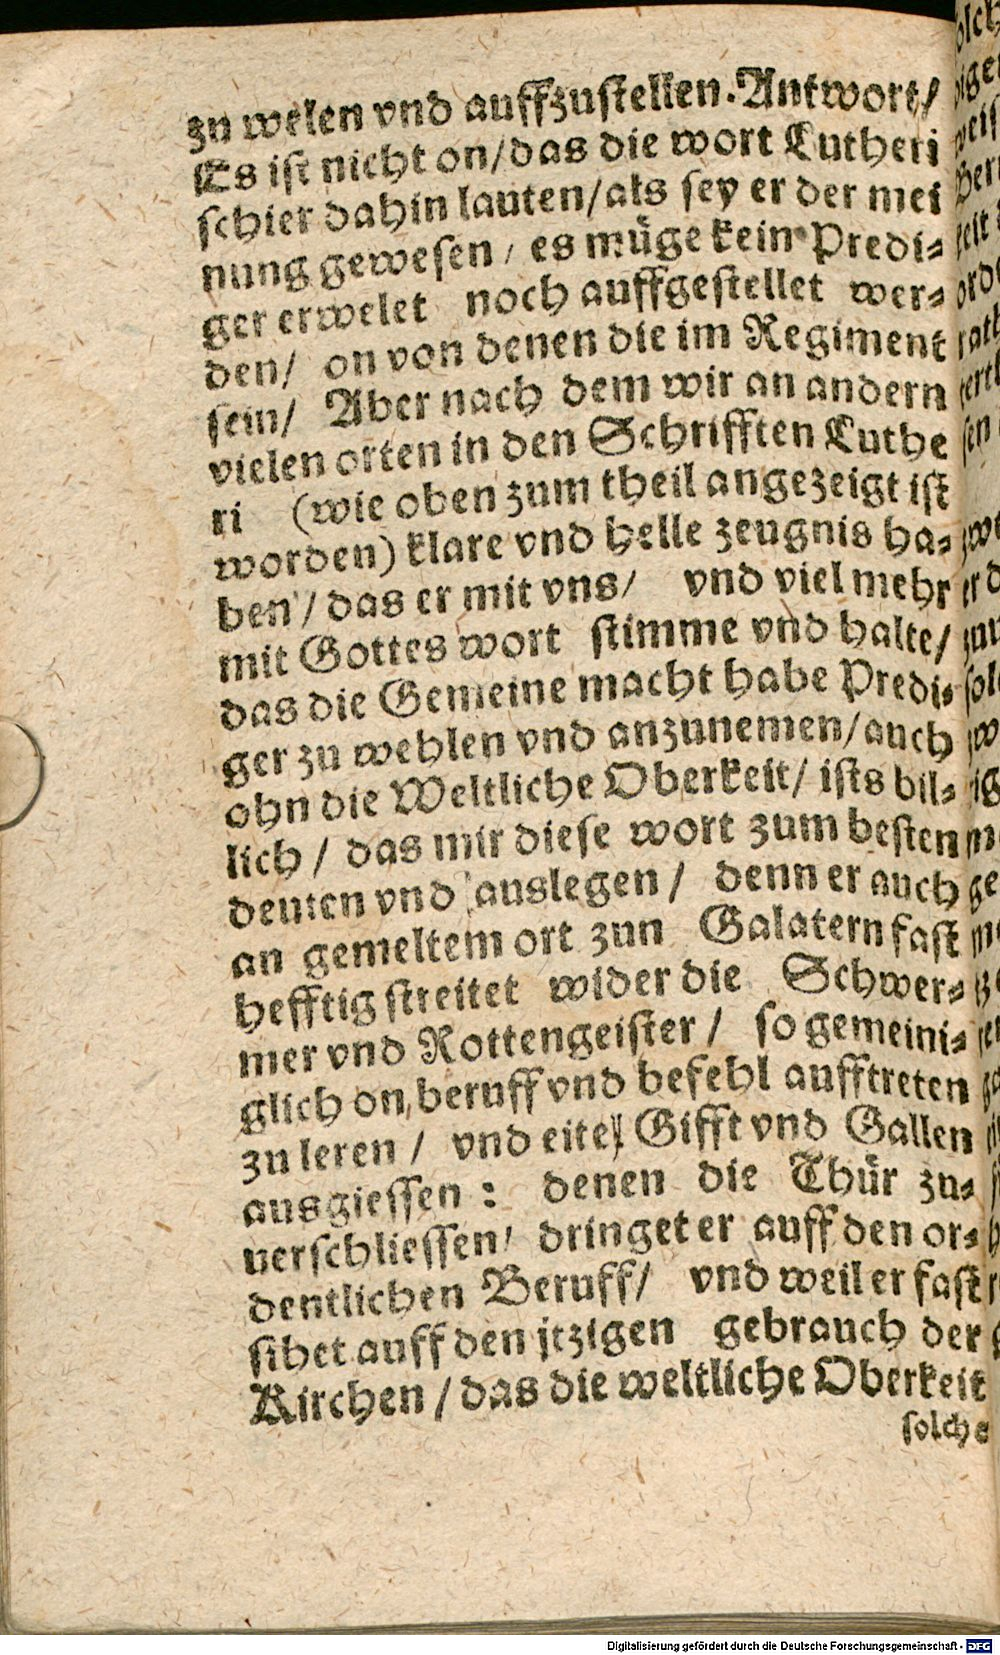 zu welen vnd auffzustellen. Antwort/
Es ist nicht on/das die wort Lutheri
schier dahin lauten/als sey er der mei
nung gewesen / es müge kein Predi⸗
ger erwelet noch auffgestellet wer⸗
den/ on von denen die im Regiment
sein/ Aber nach dem wir an andern
vielen orten in den Schrifften Luthe
ri (wie oben zum theil angezeigt ist
worden) klare vnd helle zeugnis ha⸗
ben / das er mit vns/ vnd viel mehr
mit Gottes wort stimme vnd halte/
das die Gemeine macht habe Predi⸗
ger zu wehlen vnd anzunemen/auch
ohn die Weltliche Oberkeit/ ists bil⸗
lich / das mir diese wort zum besten
deuten vnd auslegen / denn er auch
an gemeltem ort zun Galatern fast
hefftig streitet wider die Schwer⸗
mer vnd Rottengeister / so gemeini⸗
glich on beruff vnd befehl aufftreten
zu leren / vnd eitel Gifft vnd Gallen
ausgiessen : denen die Thür zu⸗
uerschliessen/ dringet er auff den or⸗
dentlichen Beruff/ vnd weil er fast
sihet auff den jtzigen gebrauch der
Kirchen / das die weltliche Oberkeit
solche
Digitalisierung gefördert durch die Deutsche Forschungsgemeinschaft - DFG